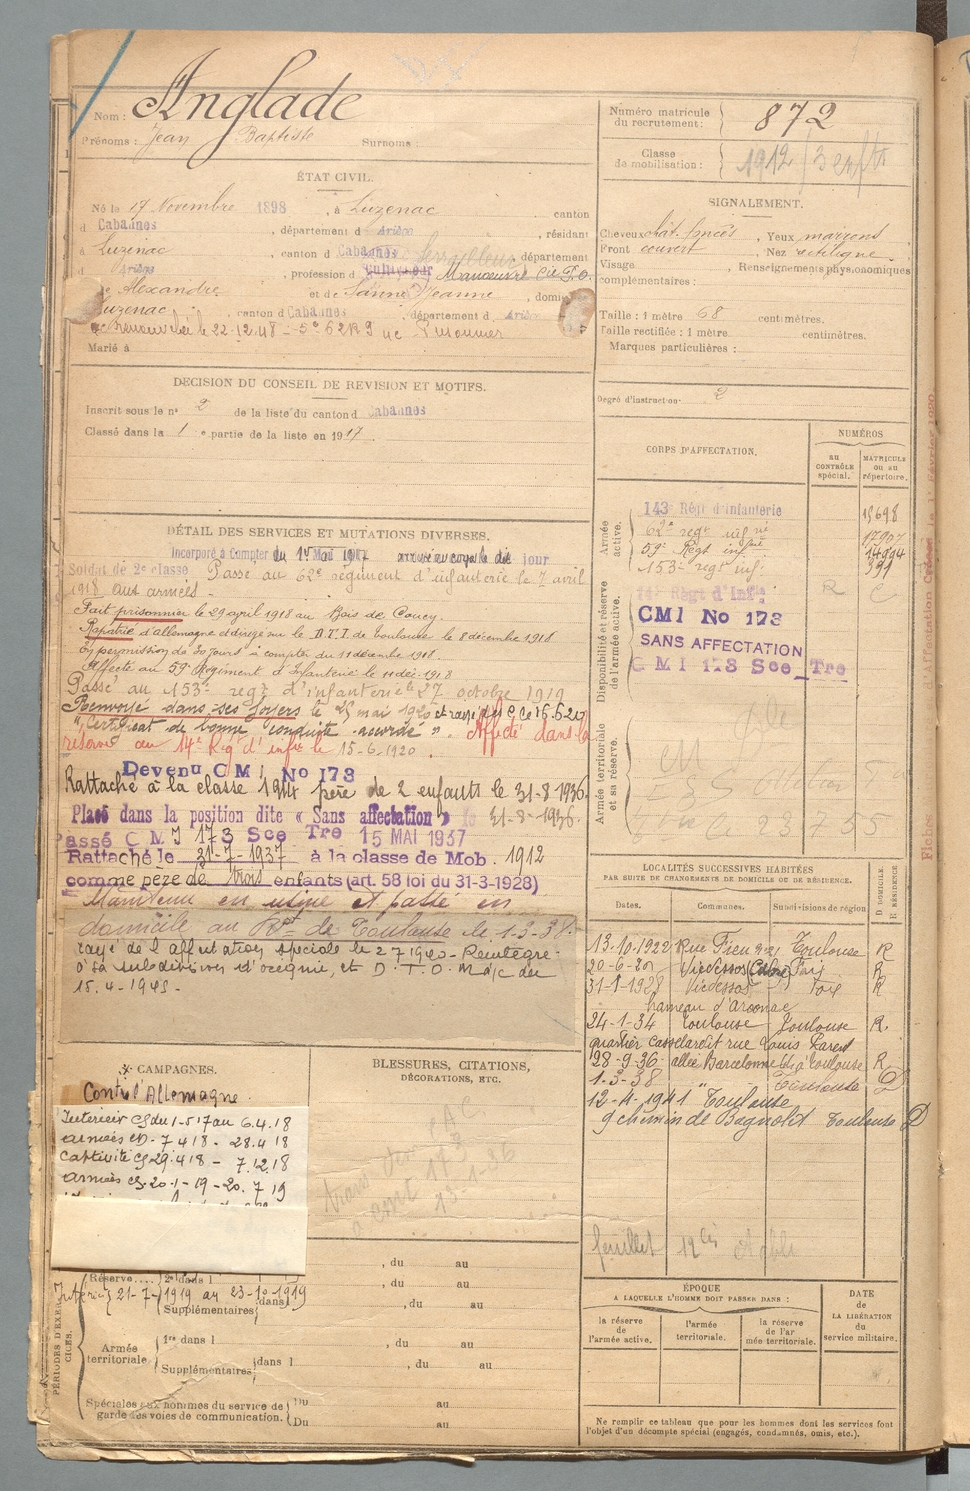 Nom : Anglade
Prénoms : Jean Baptiste Surnoms :
Numéro matricule du recrutement : 872
Classe de mobilisation : 1912 / 3 enfts
ÉTAT CIVIL.
Né le 17 Novembre 1898, à Luzenac canton
d Cabannes, département d Ariège, résidant
à Luzenac, canton d Cabannes département
d Ariège, profession d Cultivateur Manœuvre
de Alexandre et de Jeanne, domi
Luzenac, canton d Cabannes, département d Ariège
le 22.12.48
Marié à
SIGNALEMENT.
Cheveux chât. foncés, Yeux marrons
Front couvert, Nez rectiligne
Visage Renseignements physionomiques
complémentaires :
Taille : 1 mètre 68 centimètres.
Taille rectifiée : 1 mètre centimètres.
Marques particulières :
Degré d'instruction 2
DECISION DU CONSEIL DE REVISION ET MOTIFS.
Inscrit sous le n° 2 de la liste du canton d Cabannes
Classé dans la 1 e partie de la liste en 1917
DÉTAIL DES SERVICES ET MUTATIONS DIVERSES.
Incorporé à Compter du 1er Mai 1917 jour
Soldat de 2e classe Passé au 62e régiment d'infanterie le 7 avril
1918 aux armées.
Fait prisonnier le 29 avril 1918 au Bois de Coucy.
Rapatrié d'allemagne et dirigé sur le D.T.I. de Toulouse le 8 décembre 1918
En permission de 30 jours à compter du 11 décembre 1918.
Affecté au 59e Régiment d'Infanterie le 11 déc. 1918
Passé au 153e regt d'infanterie le 27 octobre 1919
Renvoyé dans ses foyers le 25 mai 1920 et rayé des c. le 15.6.20
"Certificat de bonne conduite accordé". Affecté dans la
réserve au 14e Rgt d'infie le 15-6-1920.
Devenu C M I No 173
Rattaché à la classe 1914 père de 2 enfants le 31-8-1936
Placé dans la position dite « Sans affectation » le 31-8-1936.
Passé C M I 173 Sce Tre 15 MAI 1937
Rattaché le 31-7-1937 à la classe de Mob. 1912
comme père de trois enfants (art. 58 loi du 31-3-1928)
Maintenu en usine et passé en
domicile au Rt de Toulouse le 1-3-38.
rayé de l'affectation spéciale le 2 7 1940 - Réintègre
sa subdivision d'origine,
15.4-1945.
CORPS D'AFFECTATION.
NUMÉROS
AU CONTRÔLE spécial.
MATRICULE ou au répertoire.
Armée active.
143e Régt d'infanterie 15698
62e regt infrie 17907
59e Régt inf. 14994
153e regt inf. 391
Disponibilité et réserve de l'armée active.
14e Régt d'Infie R C
CMI No 173
SANS AFFECTATION
C M I 173 Sce Tre
Armée territoriale et sa réserve.
LOCALITÉS SUCCESSIVES HABITÉES
PAR SUITE DE CHANGEMENTS DE DOMICILE OU DE RÉSIDENCE.
Dates. Communes. Subdivisions de région D DOMICILE. R RÉSIDENCE
13.10.1922 Rue Toulouse R
20-6-20 Vicdessos Foix R
31-1-1928 Vicdessos Foix R
hameau d'Arconac
24-1-34 Toulouse Toulouse R.
quartier Casselardit rue Louis Parent
28-9-36 allée Barcelonne à Toulouse R
1-3-38 Toulouse D
12-4-1941 Toulouse
9 chemin de Bagnolet Toulouse D
feuillet établi
CAMPAGNES.
Contre l'Allemagne.
Intérieur CS du 1-5 17 au 6.4.18
armées CD - 7 4 18 - 28.4 18
Captivité CS 29.4 18 - 7.12.18
armées CS. 20-1-19 - 20. 7 19
BLESSURES, CITATIONS,
DÉCORATIONS, ETC.
173
13-1-36
PÉRIODES D'EXERCICES.
Réserve.... 2e dans l , du au
Intérieur 21-7-1919 au 23-10-1919 , du au
Supplémentaires dans l , du au
Armée territoriale
1re dans l , du au
Supplémentaires dans l , du au
Spéciales aux hommes du service de garde des voies de communication.
Du au
Du au
ÉPOQUE
A LAQUELLE L'HOMME DOIT PASSER DANS :
la réserve de l'armée active.
l'armée territoriale.
la réserve de l'armée territoriale.
DATE DE LA LIBÉRATION du service militaire.
Ne remplir ce tableau que pour les hommes dont les services font
l'objet d'un décompte spécial (engagés, condamnés, omis, etc.).